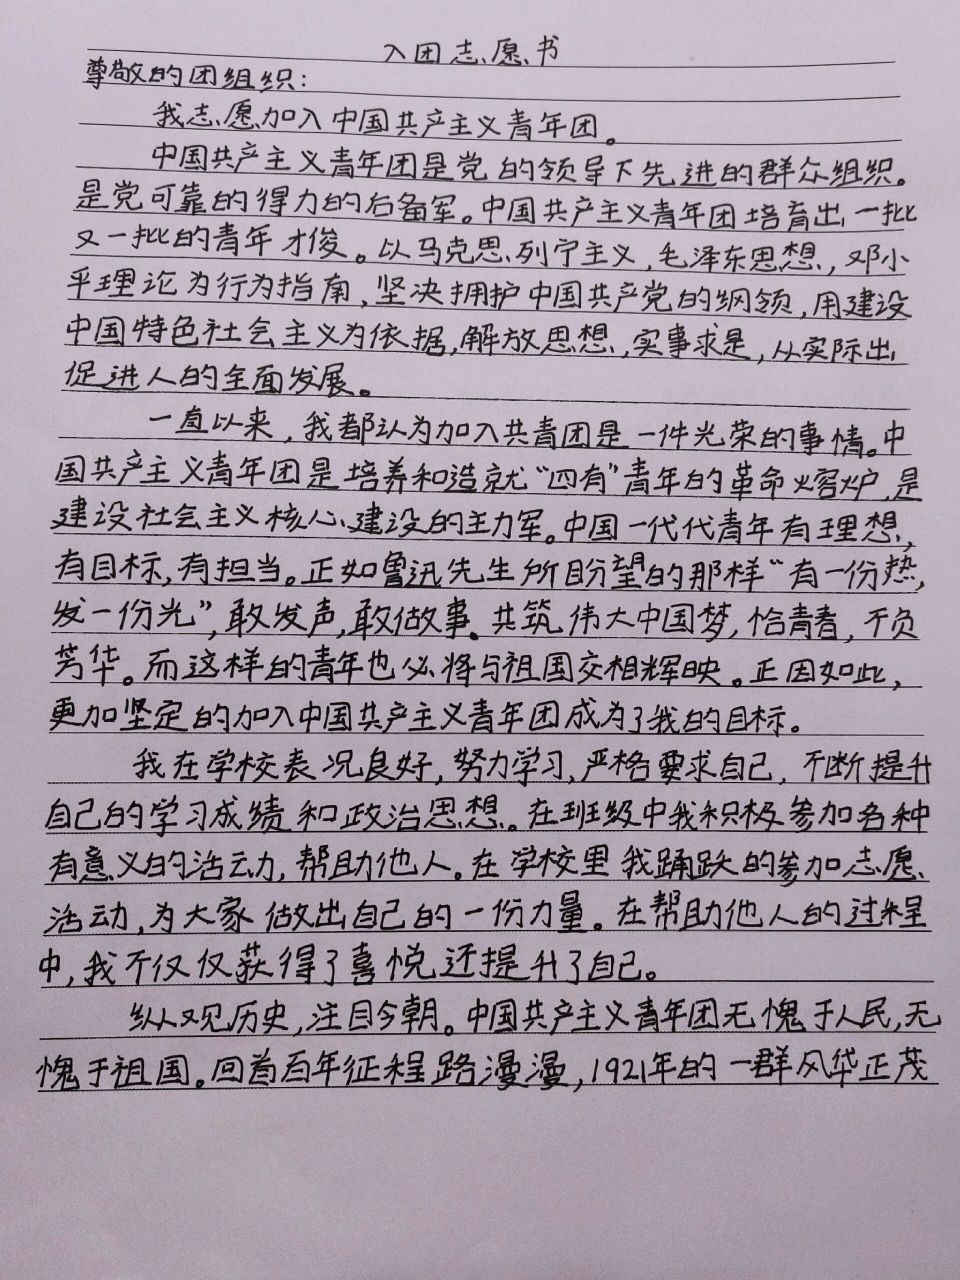 入团志愿书
尊敬的团组织：
我志愿加入中国共产主义青年团。
中国共产主义青年团是党的领导下先进的群众组织。
是党可靠的得力的后备军。中国共产主义青年团培育出一批
又一批的青年才俊。以马克思、列宁主义，毛泽东思想，邓小
平理论为行为指南，坚决拥护中国共产党的纲领，用建设
中国特色社会主义为依据，解放思想，实事求是，从实际出，
促进人的全面发展。
一直以来，我都认为加入共青团是一件光荣的事情。中
国共产主义青年团是培养和造就“四有”青年的革命熔炉，是
建设社会主义核心、建设的主力军。中国一代代青年有理想，
有目标，有担当。正如鲁迅先生所盼望的那样“有一份热，
发一份光”，敢发声，敢做事。共筑伟大中国梦，恰青春，不负
芳华。而这样的青年也必将与祖国交相辉映。正因如此，
更加坚定的加入中国共产主义青年团成为了我的目标。
我在学校表况良好，努力学习，严格要求自己，不断提升
自己的学习成绩和政治思想。在班级中我积极参加各种
有意义的活动，帮助他人。在学校里我踊跃的参加志愿
活动，为大家做出自己的一份力量。在帮助他人的过程
中，我不仅仅获得了喜悦还提升了自己。
纵观历史，注目今朝。中国共产主义青年团无愧于人民，无
愧于祖国。回首百年征程路漫漫，1921年的一群风华正茂